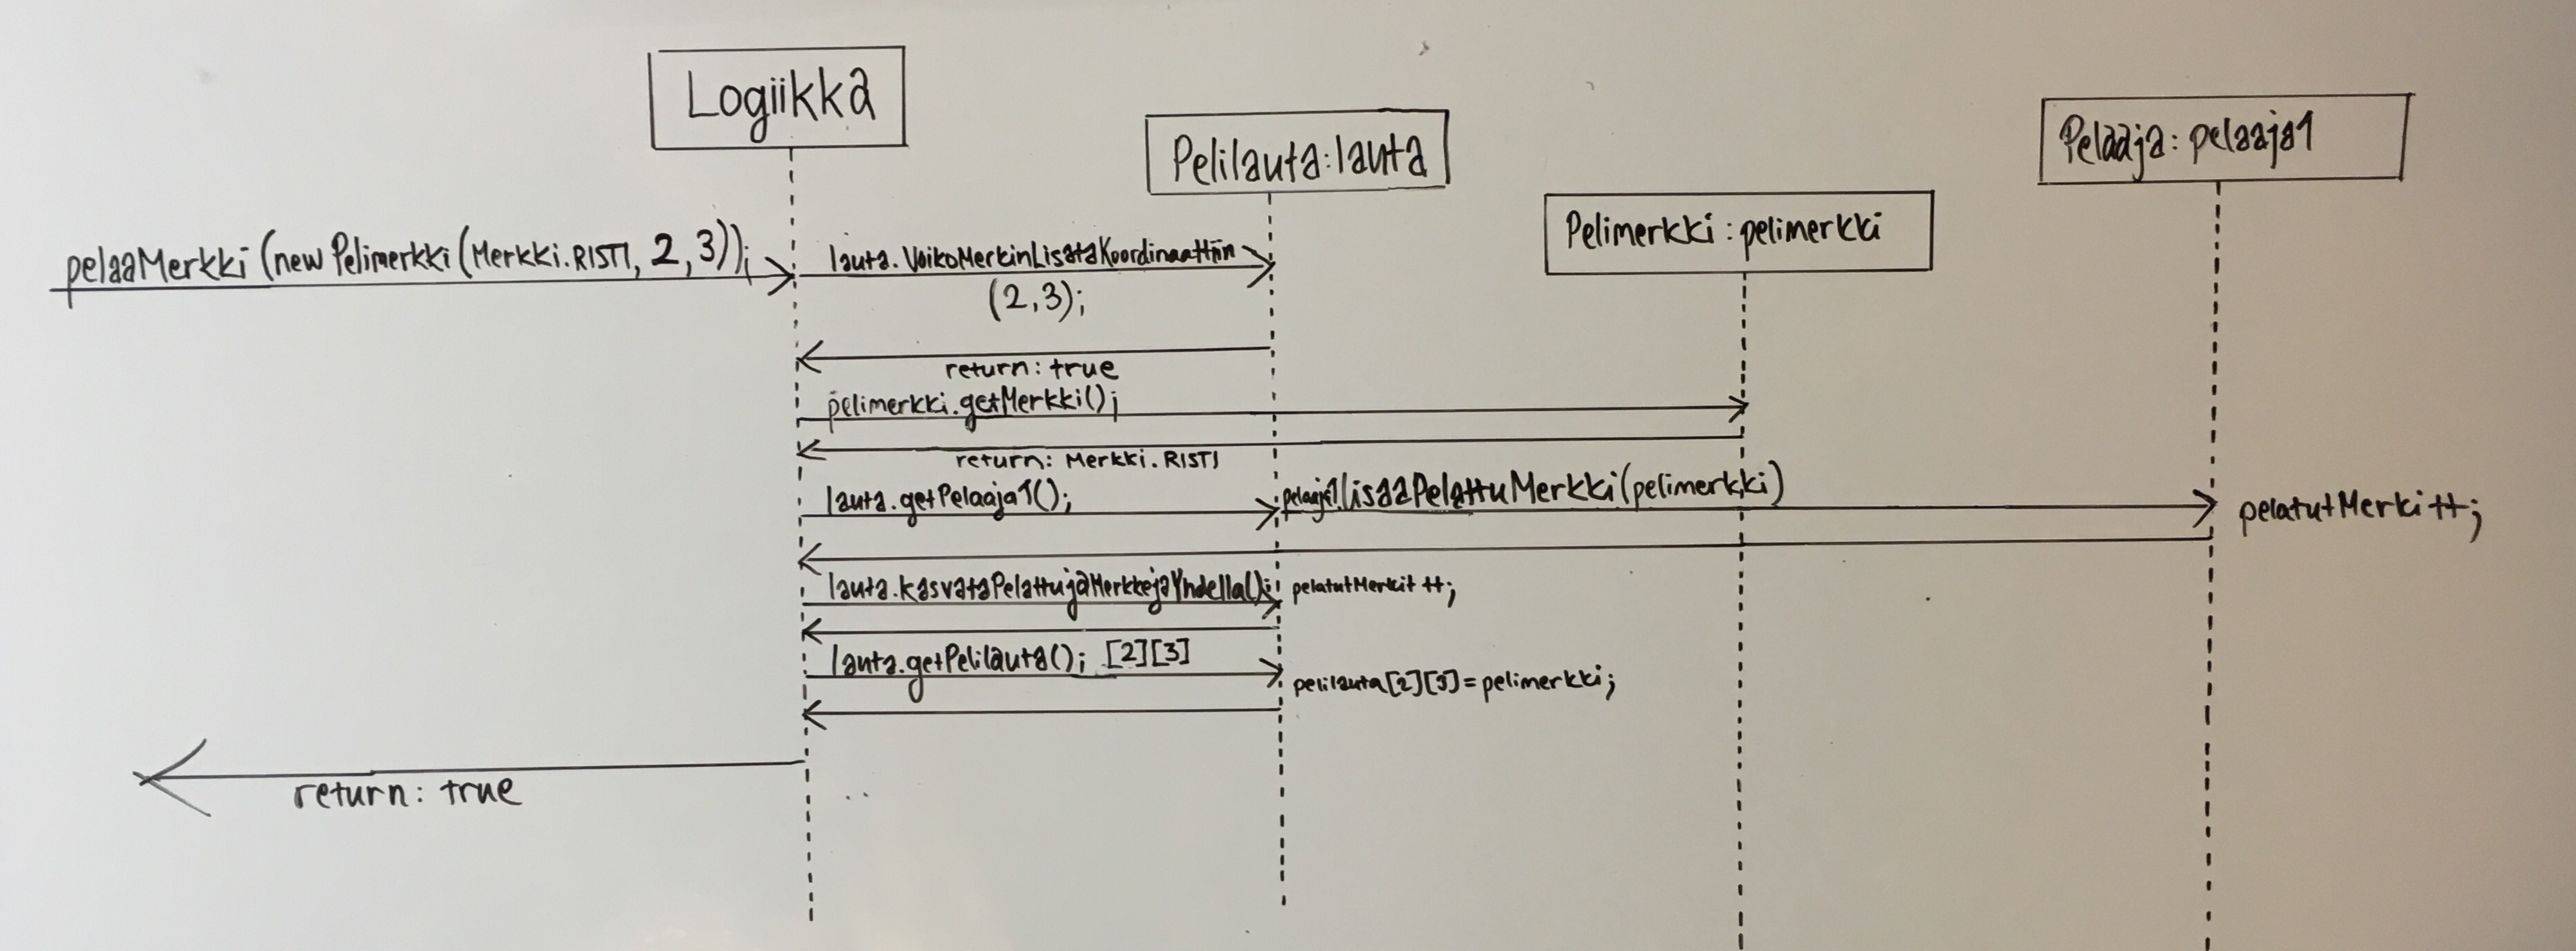 Logiikka
Pelilauta:lauta
Pelimerkki:pelimerkki
Pelaaja: pelaaja1
pelaaMerkki(new Pelimerkki(Merkki.RISTI, 2,3));
lauta.VoikoMerkinLisataKoordinaattiin
(2,3);
return: true
pelimerkki.getMerkki();
return: Merkki.RISTI
lauta.getPelaaja1();
pelaaja1.lisaaPelattuMerkki(pelimerkki)
pelatutMerkit++;
lauta.kasvataPelattujaMerkkejaYhdella();
pelatutMerkit ++;
lauta.getPelilauta(); [2][3]
pelilauta[2][3]=pelimerkki;
return: true